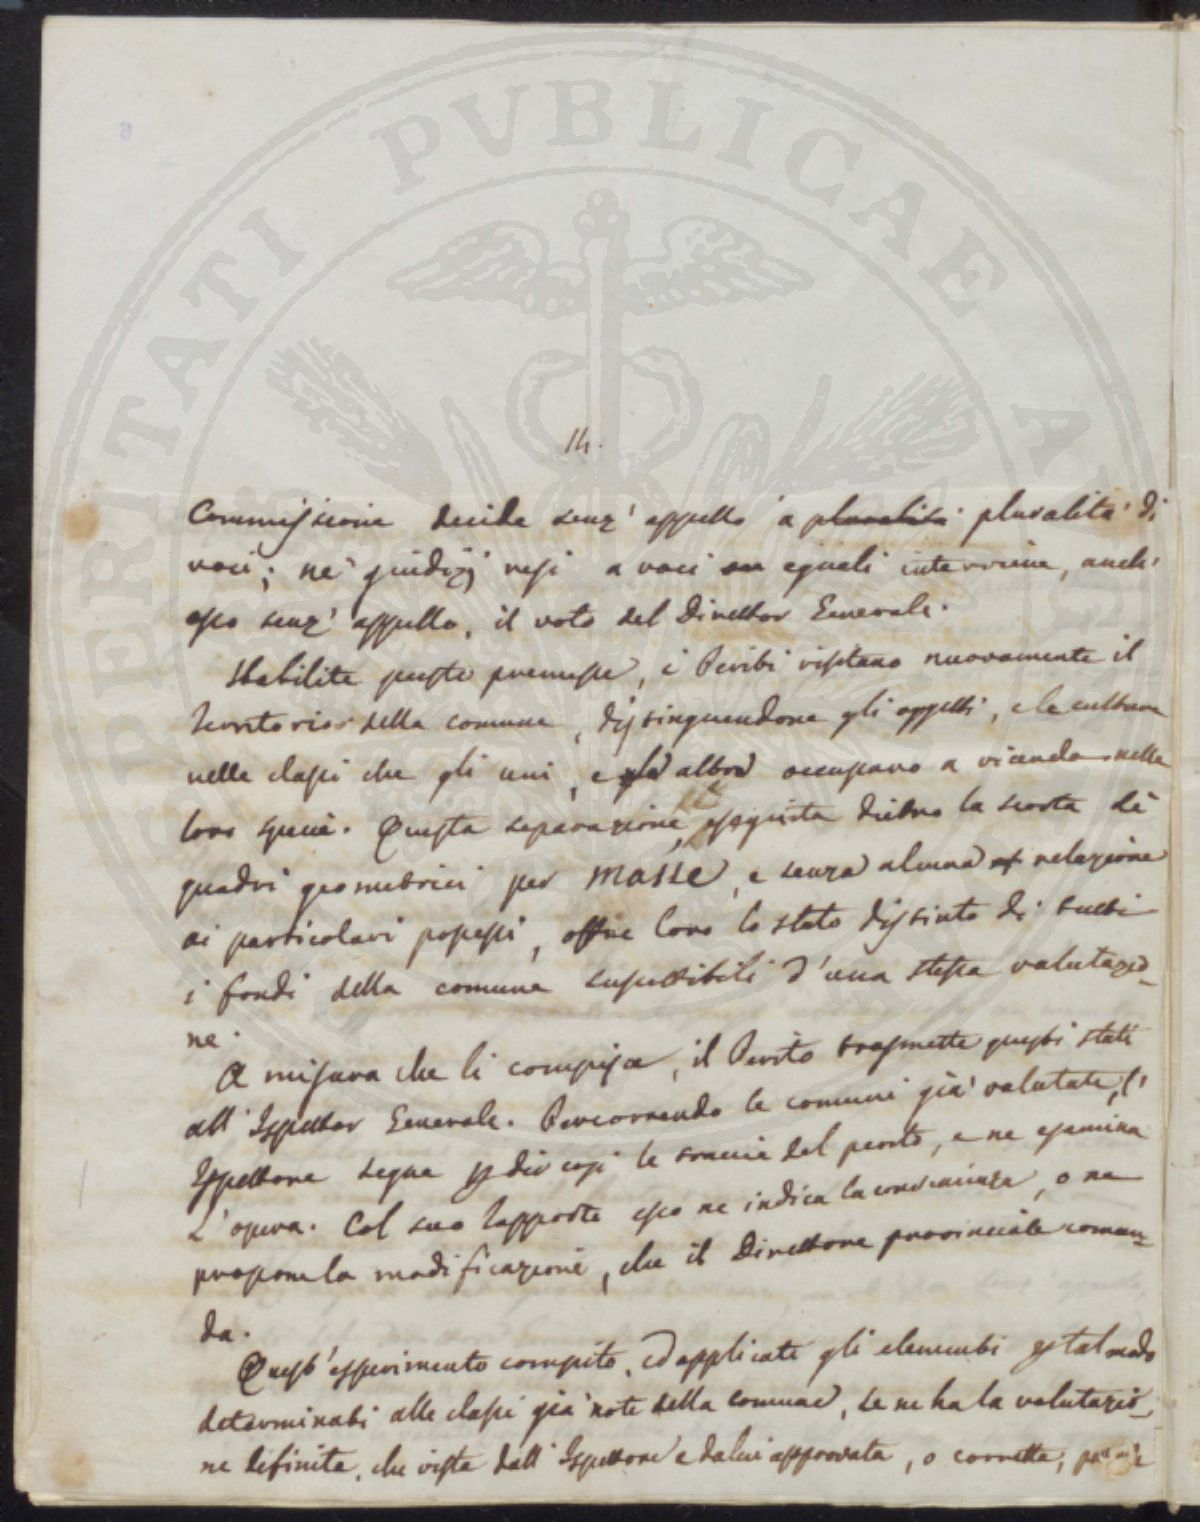 PERITATI PVBLICAE
14.
Commissione decide senz' appello a pluralità pluralità di
voci; ne' giudizj resi a voci eguali interviene, anch'
esso senz' appello, il voto del Direttor Generale.
Stabilite queste premesse, i Periti visitano nuovamente il
territorio della comune, distinguendone gli oggetti, e le culture
nelle classi che gli uni, e altre occupano a vicenda nelle
loro specie. Questa separazione, eseguita dietro la scorta de'
quadri geometrici per masse, e senza alcuna relazione
ai particolari possessi, offre loro lo stato distinto di tutti
i fondi della comune suscettibili d'una stessa valutazio-
ne.
A misura che li compisce, il Perito trasmette questi stati
all' Ispettor Generale. Percorrendo le comuni già valutate, l'
Ispettore segue così le traccie del perito, e ne esamina
L'opera. Col suo rapporto esso ne indica la convenienza, o ne
propone la modificazione, che il Direttore provinciale coman-
da.
Quest' esperimento compito, ed applicate gli elementi tal modo
determinati alle classi già note della comune, se ne ha la valutazio-
ne definita, che vista dall' Ispettore e da lui approvata, o corretta,